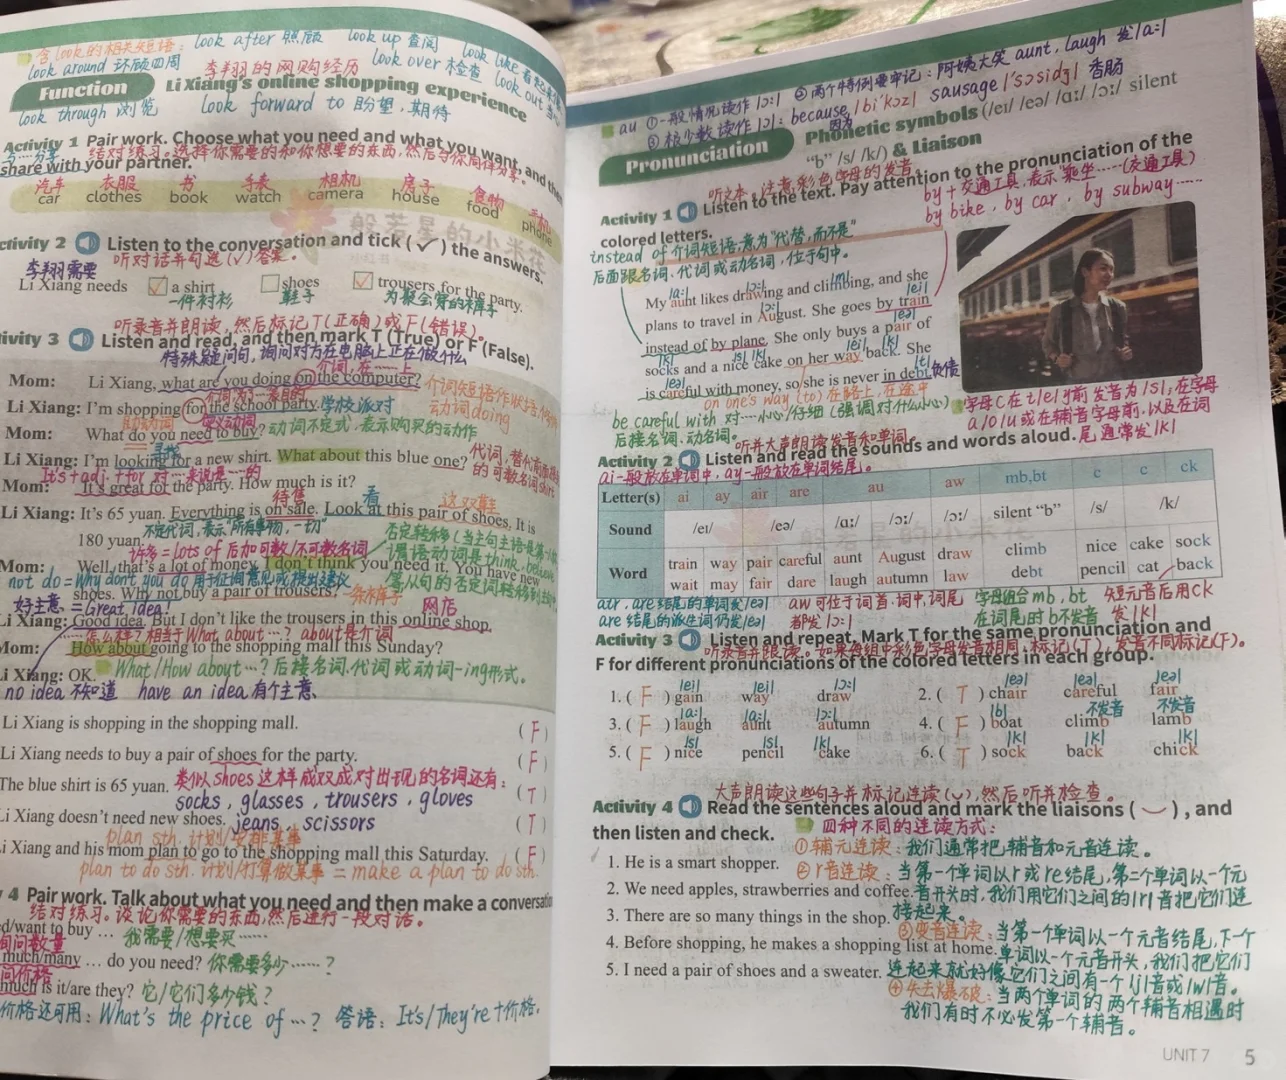 含look的相关短语: look after 照顾 look up 查阅
look around 环顾四周 look over 检查
李翔的网购经历
Function
Li Xiang's online shopping experience
look through 浏览 look forward to 盼望,期待
Activity 1 Pair work. Choose what you need and what you want, and then
结对练习。选择你需要的和你想要的东西,然后与你同伴分享。
share with your partner.
汽车 衣服 书 手表 相机 房子 食物 手机
car clothes book watch camera house food phone
ctivity 2 Listen to the conversation and tick (✓) the answers.
听对话并勾选(✓)答案。
李翔需要
Li Xiang needs a shirt shoes trousers for the party.
一件衬衫 鞋子 为聚会穿的裤子
听录音并朗读,然后标记T(正确)或F(错误)。
tivity 3 Listen and read, and then mark T (True) or F (False).
特殊疑问句,询问对方在电脑上正在做什么
介词,在……上
Mom: Li Xiang, what are you doing on the computer?
Li Xiang: I'm shopping for the school party. 学校派对
动词doing
Mom: What do you need to buy? 动词不定式,表示购买的动作
寻找
Li Xiang: I'm looking for a new shirt. What about this blue one?
It's + adj. + for 对…来说是…的
Mom: It's great for the party. How much is it?
待售 看 这双鞋
Li Xiang: It's 65 yuan. Everything is on sale. Look at this pair of shoes. It is
180 yuan. 不定代词,表示"所有事物,一切"
许多=lots of 后加可数/不可数名词
Mom: Well, that's a lot of money. I don't think you need it. You have new
not do = Why don't you do 用于征询意见或提出建议
shoes. Why not buy a pair of trousers? 一条裤子
好主意 = Great idea! 网店
Li Xiang: Good idea. But I don't like the trousers in this online shop.
怎么样?相当于What about…? about是介词
Mom: How about going to the shopping mall this Sunday?
Li Xiang: OK. What/How about…? 后接名词.代词或动词-ing形式。
no idea 不知道 have an idea 有个主意
Li Xiang is shopping in the shopping mall. (F)
Li Xiang needs to buy a pair of shoes for the party. (F)
The blue shirt is 65 yuan. 类似shoes这样成双成对出现的名词还有: (T)
socks, glasses, trousers, gloves
Li Xiang doesn't need new shoes. jeans, scissors (T)
plan sth. 计划/安排某事
Li Xiang and his mom plan to go to the shopping mall this Saturday. (F)
plan to do sth. 计划/打算做某事 = make a plan to do sth.
4 Pair work. Talk about what you need and then make a conversation
结对练习。谈论你需要的东西,然后进行一段对话。
d/want to buy … 我需要/想要买……
询问数量
much/many … do you need? 你需要多少……?
问价格
much is it/are they? 它/它们多少钱?
价格还可用: What's the price of …? 答语: It's/They're+价格.
②两个特例要牢记:阿姨大笑 aunt, laugh 发/ɑː/
au ①一般情况读作/ɔː/
③极少数读作/ɒ/: because /bɪ'kɒz/ sausage /'sɒsɪdʒ/ 香肠
因为
Pronunciation
Phonetic symbols (/eɪ/ /eə/ /ɑː/ /ɔː/ silent
"b" /s/ /k/) & Liaison
听文本。注意彩色字母的发音。
Activity 1 Listen to the text. Pay attention to the pronunciation of the
colored letters.
by+交通工具,表示"乘坐……(交通工具)
by bike, by car, by subway……
instead of 介词短语,意为"代替,而不是"
后面跟名词、代词或动名词,位于句中。
My aunt likes drawing and climbing, and she
plans to travel in August. She goes by train
instead of by plane. She only buys a pair of
socks and a nice cake on her way back. She
is careful with money, so she is never in debt. 负债
on one's way (to) 在路上,在途中
be careful with 对…小心/仔细(强调对什么小心)
后接名词、动名词。
字母C在i/e/y前发音为/s/,在字母
a/o/u或在辅音字母前,以及在词
尾通常发/k/
听并大声朗读发音和单词
Activity 2 Listen and read the sounds and words aloud.
ai一般放在单词中,ay一般放在单词结尾。
Letter(s) ai ay air are au aw mb,bt c c ck
Sound /eɪ/ /eə/ /ɑː/ /ɔː/ /ɔː/ silent "b" /s/ /k/
Word train way pair careful aunt August draw climb nice cake sock
wait may fair dare laugh autumn law debt pencil cat back
air, are结尾的单词发/eə/ aw可位于词首.词中,词尾 字母组合mb,bt 短元音后用ck
are结尾的派生词仍发/eə/ 都发/ɔː/ 在词尾时b不发音 发/k/
Activity 3 Listen and repeat. Mark T for the same pronunciation and
听录音并跟读。如果每组中彩色字母发音相同,标记(T),发音不同标记(F)。
F for different pronunciations of the colored letters in each group.
/eɪ/ /eɪ/ /ɔː/ /eə/ /eə/ /eə/
1. (F) gain way draw 2. (T) chair careful fair
/ɑː/ /ɑː/ /ɔː/ /b/ 不发音 不发音
3. (F) laugh aunt autumn 4. (F) boat climb lamb
/s/ /s/ /k/ /k/ /k/ /k/
5. (F) nice pencil cake 6. (T) sock back chick
大声朗读这些句子并标记连读(‿),然后听并检查。
Activity 4 Read the sentences aloud and mark the liaisons (‿), and
then listen and check. 四种不同的连读方式:
①辅元连读:我们通常把辅音和元音连读。
1. He is a smart shopper. ②r音连读:当第一个单词以r或re结尾,第二个单词以一个元
2. We need apples, strawberries and coffee. 音开头时,我们用它们之间的/r/音把它们连
3. There are so many things in the shop. 接起来。
③元音连读:当第一个单词以一个元音结尾,下一个
4. Before shopping, he makes a shopping list at home. 单词以一个元音开头,我们把它们
5. I need a pair of shoes and a sweater. 连起来就好像它们之间有一个/j/音或/w/音。
④失去爆破:当两个单词的两个辅音相遇时
我们有时不必发第一个辅音。
UNIT 7 5